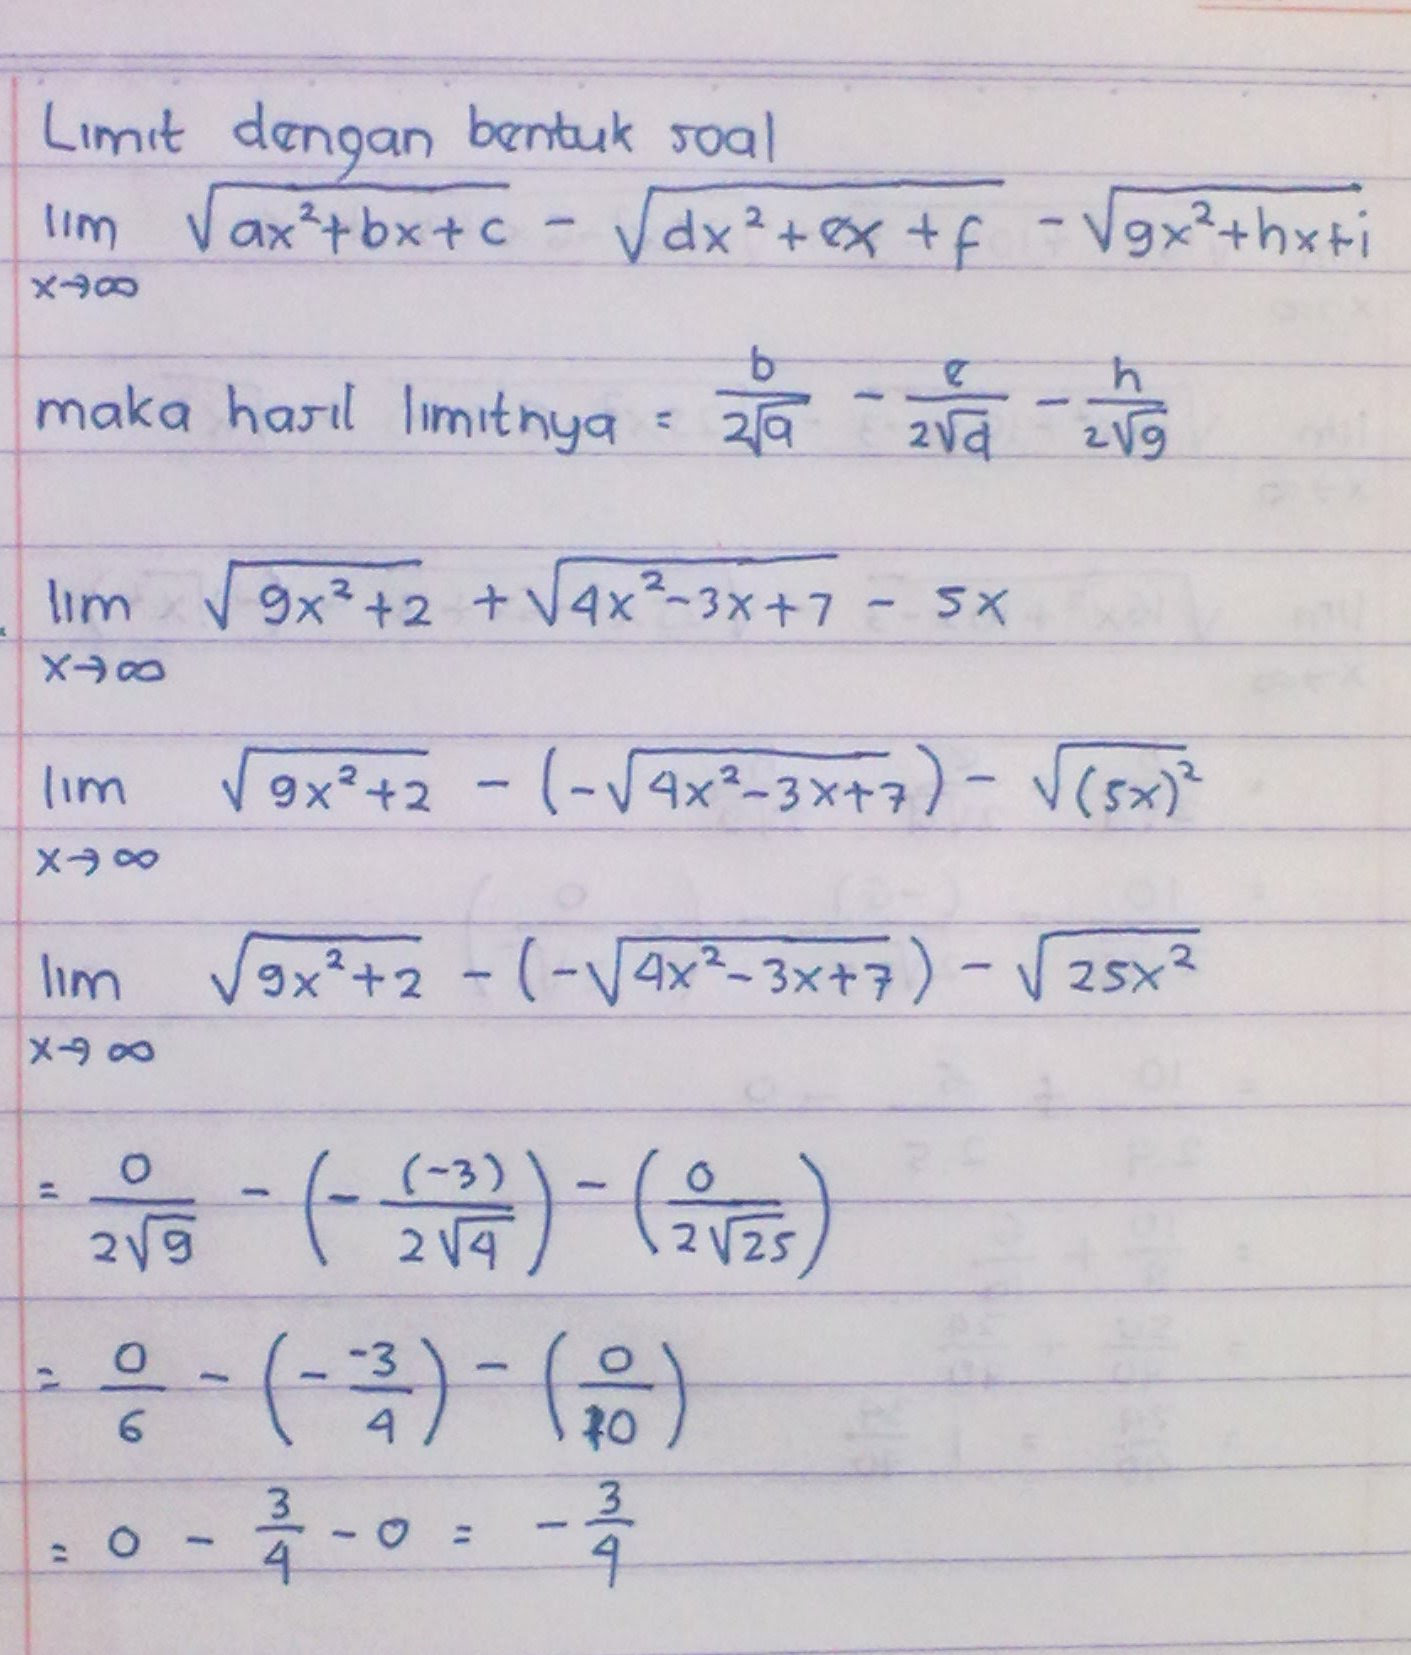 Limit dengan bentuk soal
lim √(ax²+bx+c) - √(dx²+ex+f) - √(gx²+hx+i)
x→∞
maka hasil limitnya = b/2√a - e/2√d - h/2√g
lim √(9x²+2) + √(4x²-3x+7) - 5x
x→∞
lim √(9x²+2) - (-√(4x²-3x+7)) - √((5x)²)
x→∞
lim √(9x²+2) - (-√(4x²-3x+7)) - √(25x²)
x→∞
= 0/2√9 - (- (-3)/2√4) - (0/2√25)
= 0/6 - (- -3/4) - (0/10)
= 0 - 3/4 - 0 = - 3/4